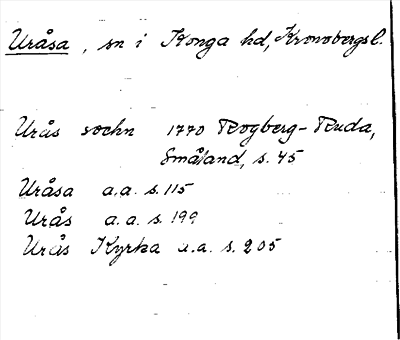 Uråsa, sn i Konga hd, Kronobergs l.
Urås sochn 1770 Rogberg-Ruda,
Småland, s. 45
Uråsa a.a. s. 115
Urås a.a. s. 199
Urås Kyrka a.a. s. 205